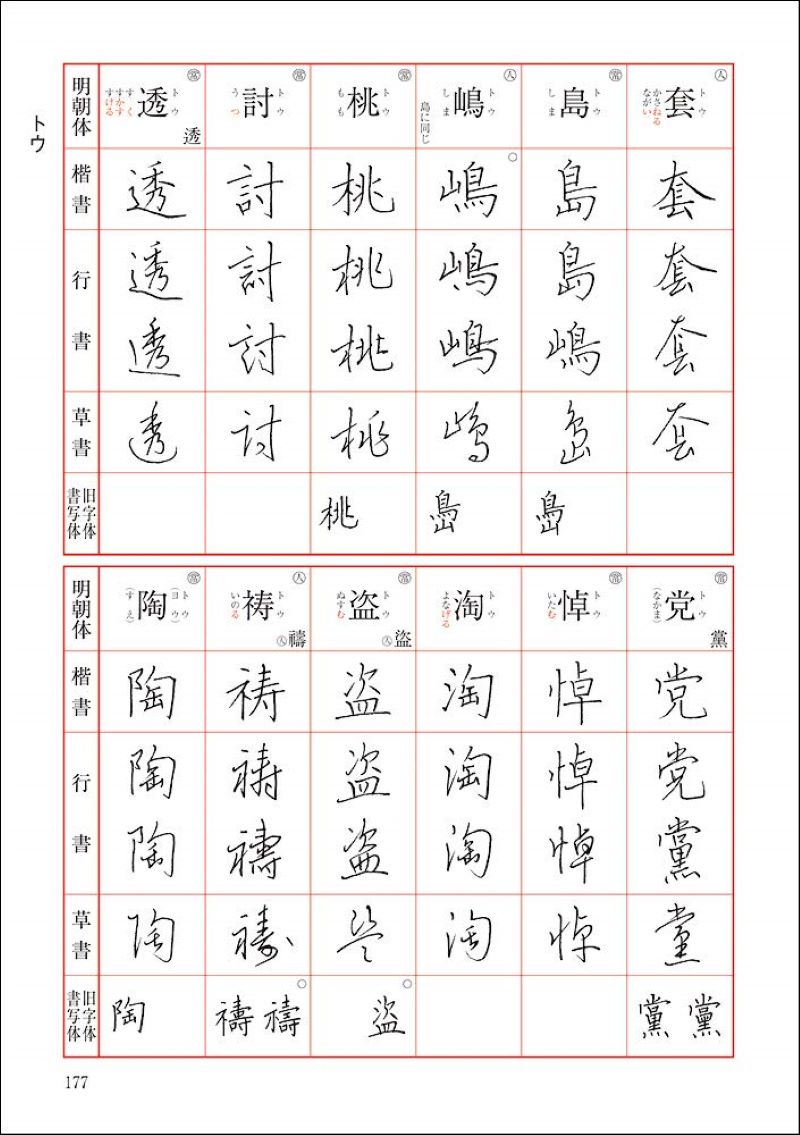 トウ
明朝体
楷書
行書
草書
旧字体
書写体
人 套 トウ かさねる ながい
套
套
套
套
常 島 トウ しま
島
島
嶋
島
㠀
人 嶋 トウ しま 島に同じ
嶋
嶋
嶋
嶋
㠀
常 桃 トウ もも
桃
桃
桃
桃
桃
常 討 トウ うつ
討
討
討
討
常 透 トウ すく すかす すける 透
透
透
透
透
明朝体
楷書
行書
草書
旧字体
書写体
常 党 トウ (なかま) 黨
党
党
黨
党
黨 黨
常 悼 トウ いたむ
悼
悼
悼
悼
常 淘 トウ よなげる
淘
淘
淘
淘
常 盗 トウ ぬすむ 人 盜
盗
盗
盗
盗
盜
人 祷 トウ いのる 人 禱
祷
祷
禱
祷
禱 禱
常 陶 トウ (ヨウ) (すえ)
陶
陶
陶
陶
陶
177